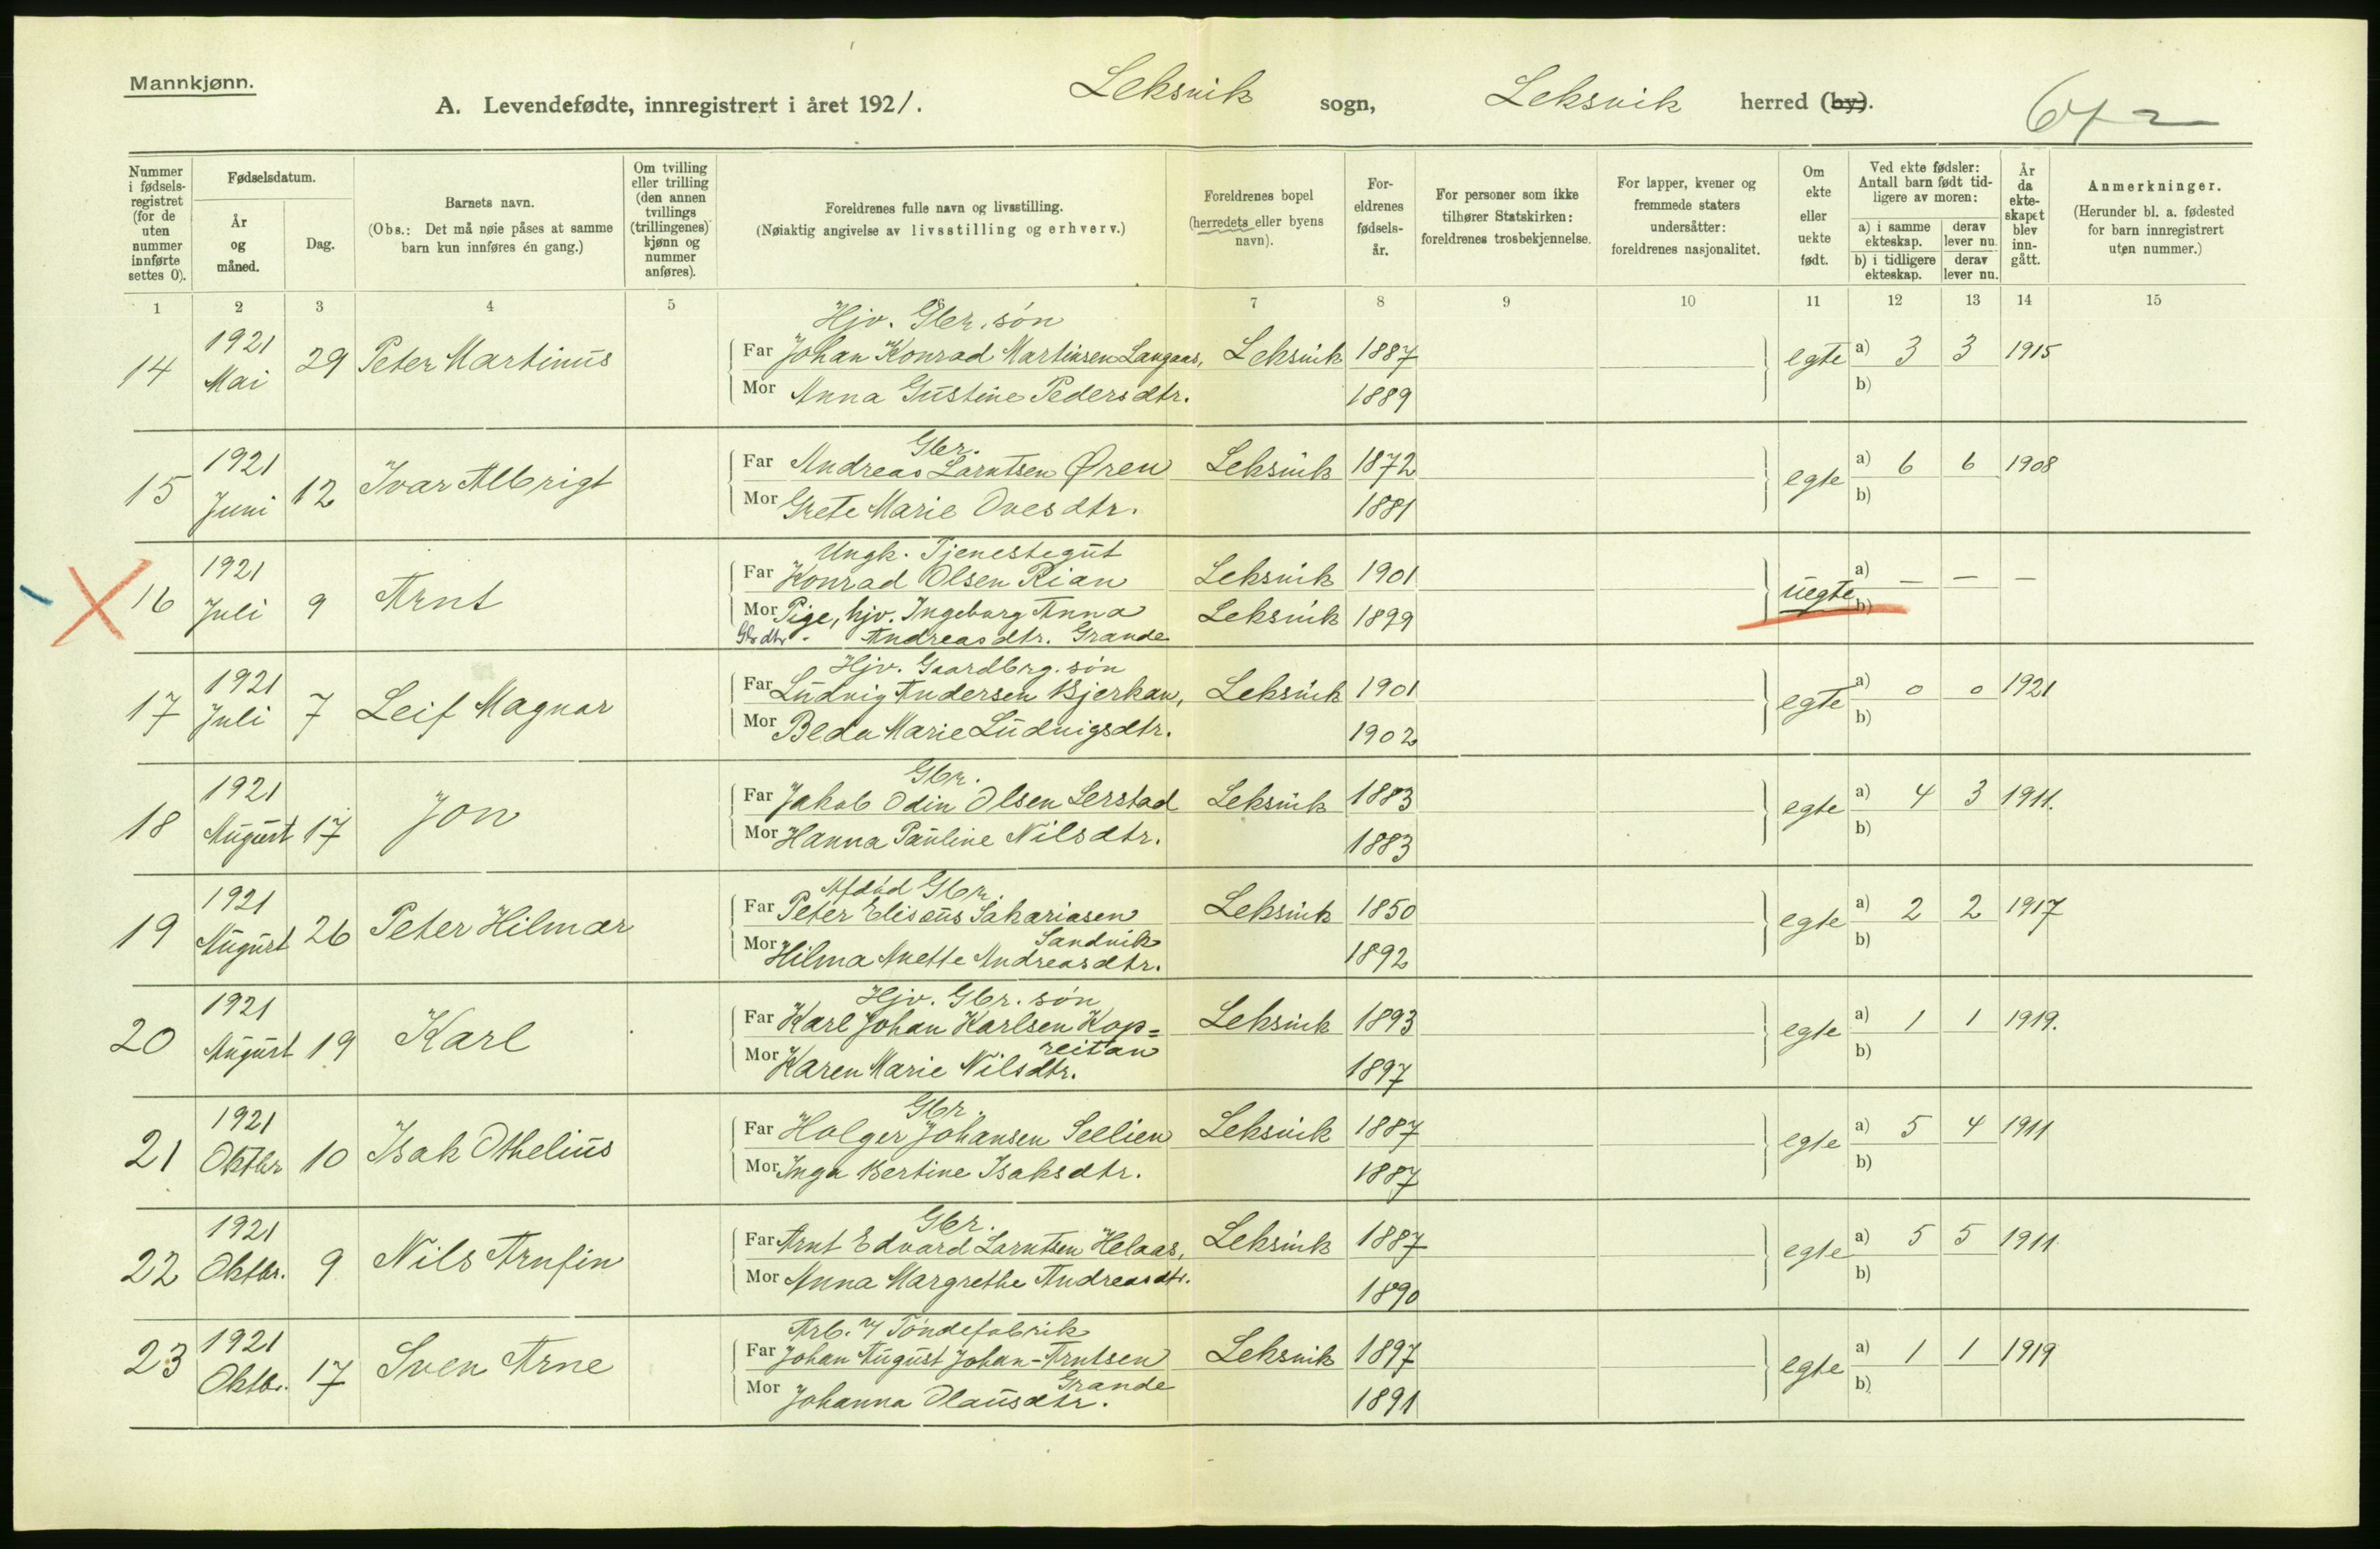 Mannkjønn.
A. Levendefødte, innregistrert i året 1921. Leksvik sogn, Leksvik herred (by).
Nummer i fødsels-registret (for de uten nummer innførte settes 0).
Fødselsdatum.
År og måned.
Dag.
Barnets navn.
(Obs.: Det må nøie påses at samme barn kun innføres én gang.)
Om tvilling eller trilling (den annen tvillings (trillingenes) kjønn og nummer anføres).
Foreldrenes fulle navn og livsstilling.
(Nøiaktig angivelse av livsstilling og erhverv.)
Foreldrenes bopel (herredets eller byens navn).
For-eldrenes fødsels-år.
For personer som ikke tilhører Statskirken: foreldrenes trosbekjennelse.
For lapper, kvener og fremmede staters undersåtter: foreldrenes nasjonalitet.
Om ekte eller uekte født.
Ved ekte fødsler: Antall barn født tid-ligere av moren:
a) i samme ekteskap. derav lever nu.
b) i tidligere ekteskap. derav lever nu.
År da ekte-skapet blev inn-gått.
Anmerkninger.
(Herunder bl. a. fødested for barn innregistrert uten nummer.)
1 2 3 4 5 6 7 8 9 10 11 12 13 14 15
Hjv. Gbr. søn
14 1921 Mai 29 Peter Martinus Far Johan Konrad Martinsen Langaas, Leksvik 1887 egte a) 3 3 1915
Mor Anna Gustine Pedersdtr. 1889 b)
Gbr.
15 1921 Juni 12 Ivar Albrigt Far Andreas Larntsen Øren Leksvik 1872 egte a) 6 6 1908
Mor Grete Marie Ovesdtr. 1881 b)
Ungk. Tjenestegut
16 1921 Juli 9 Arnt Far Konrad Olsen Rian Leksvik 1901 uegte a) — — —
Mor Pige, hjv. Ingeborg Anna Leksvik 1899 b)
Gbdtr. Andreasdtr. Grande
Hjv. Gaardbrg. søn
17 1921 Juli 7 Leif Magnar Far Ludvig Andersen Bjerkan, Leksvik 1901 egte a) 0 0 1921
Mor Beda Marie Ludvigsdtr. 1902 b)
Gbr.
18 1921 August 17 Jon Far Jakob Odin Olsen Lerstad Leksvik 1883 egte a) 4 3 1911.
Mor Hanna Pauline Nilsdtr. 1883 b)
Afdød Gbr.
19 1921 August 26 Peter Hilmar Far Peter Eliseus Sakariasen Leksvik 1850 egte a) 2 2 1917
Sandvik
Mor Hilma Anette Andreasdtr. 1892 b)
Hjv. Gbr. søn
20 1921 August 19 Karl Far Karl Johan Karlsen Kop= Leksvik 1893 egte a) 1 1 1919.
reitan
Mor Karen Marie Nilsdtr. 1897 b)
Gbr.
21 1921 Oktbr 10 Isak Othelius Far Holger Johansen Seelien Leksvik 1887 egte a) 5 4 1911
Mor Inga Bertine Isaksdtr. 1887 b)
Gbr.
22 1921 Oktbr. 9 Nils Arnfin Far Arnt Edvard Larntsen Helaas, Leksvik 1887 egte a) 5 5 1911
Mor Anna Margrethe Andreasdtr. 1890 b)
Arb. v/ Tøndefabrik
23 1921 Oktbr. 17 Sven Arne Far Johan August Johan-Arntsen Leksvik 1897 egte a) 1 1 1919
Grande
Mor Johanna Olausdtr. 1891 b)